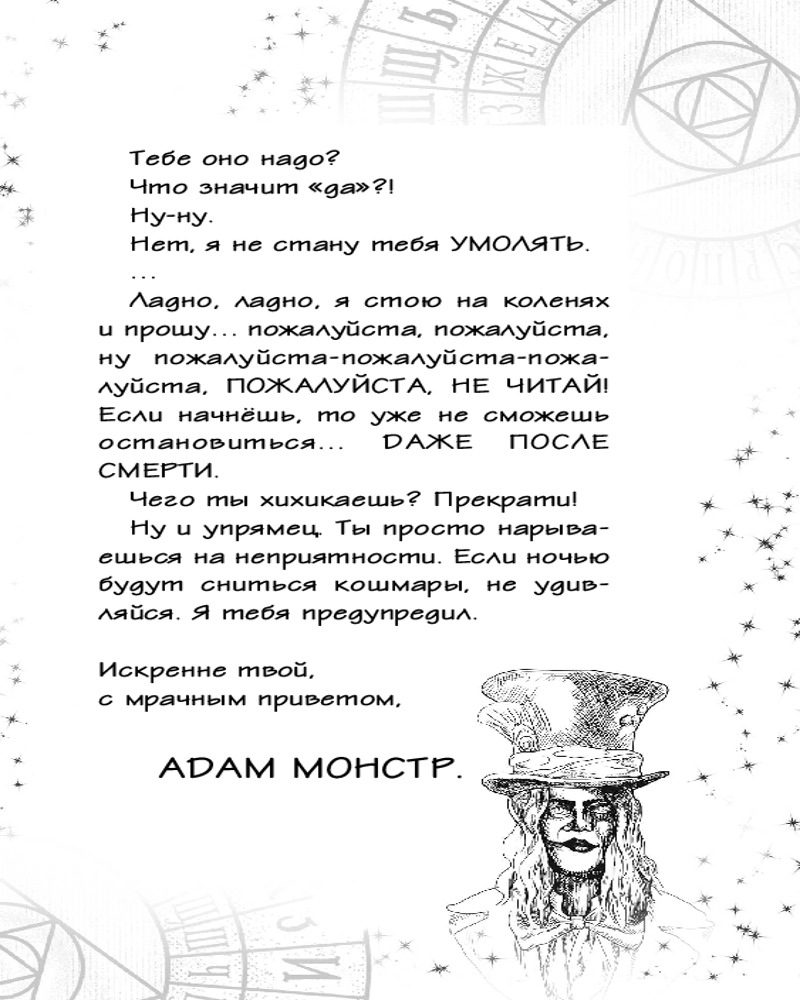 Тебе оно надо?
Что значит «да»?!
Ну-ну.
Нет, я не стану тебя УМОЛЯТЬ.
...
Ладно, ладно, я стою на коленях
и прошу... пожалуйста, пожалуйста,
ну пожалуйста-пожалуйста-пожа-
луйста, ПОЖАЛУЙСТА, НЕ ЧИТАЙ!
Если начнёшь, то уже не сможешь
остановиться... ДАЖЕ ПОСЛЕ
СМЕРТИ.
Чего ты хихикаешь? Прекрати!
Ну и упрямец. Ты просто нарыва-
ешься на неприятности. Если ночью
будут сниться кошмары, не удив-
ляйся. Я тебя предупредил.
Искренне твой,
с мрачным приветом,
АДАМ МОНСТР.